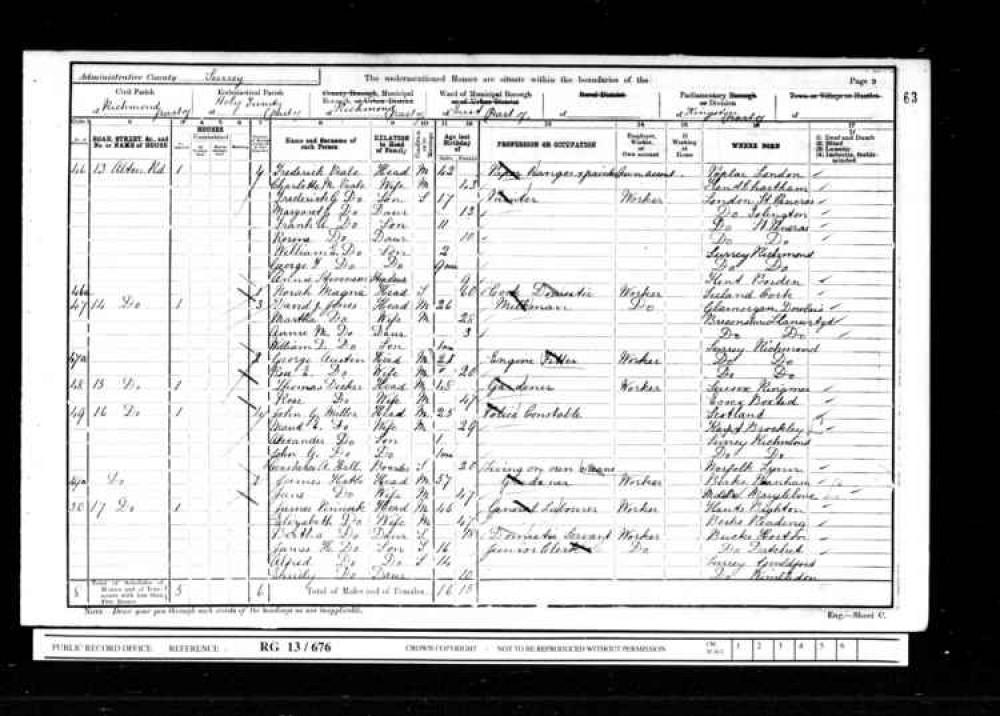 Administrative County Surrey
The undermentioned Houses are situate within the boundaries of the
Page 9
63
Civil Parish
Ecclesiastical Parish
County Borough, Municipal Borough, or Urban District
Ward of Municipal Borough or of Urban District
Rural District
Parliamentary Borough or Division
Town or Village or Hamlet
of Richmond (part of)
of Holy Trinity (part)
of Richmond (part of)
of East (Part of)
of
of Kingston (part of)
of
ROAD, STREET, &c., and No. or NAME of HOUSE
HOUSES
Name and Surname of each Person
RELATION to Head of Family
Age last Birthday of
PROFESSION OR OCCUPATION
Employer, Worker, or Own account
If Working at Home
WHERE BORN
(1) Deaf and Dumb (2) Blind (3) Lunatic (4) Imbecile, feeble-minded
46 13 Alton Rd 1 Frederick Head M 42 Paper Hanger & painter Own account Poplar London
Charlotte M. Wife M 43
Frederick G Do Son S 17 Painter Worker London St Pancras
Margaret Do Daur 13 Do Islington
Frank Do Son 11 Do St Pancras
Do Daur 10 Do Do
William Do Son 2 Surrey Richmond
George Do Do 9 mo Do Do
Annie Kent Borden
46a Norah Head S 60 Cook Domestic Worker Ireland Cork
47 14 Do 1 3 David J Jones Head M 26 Milkman Do Glamorgan Dowlais
Martha Do Wife M 28
Annie M. Do Daur 3 Do Do
William D. Do Son 1 mo Surrey Richmond
47a 2 George Austin Head M 28 Engine Fitter Worker Do Do
Rose E. Do Wife M 20 Do Do
48 15 Do 1 Thomas Decker Head M 48 Gardener Worker Sussex Ringmer
Rose Do Wife M 47 Essex Boxted
49 16 Do 1 4 John G Miller Head M 25 Police Constable Scotland
Maud Do Wife M 29 Kent Brockley
Alexander Do Son 1 Surrey Richmond
John G. Do Do 1 mo Do Do
A. Hill Boarder S 20 Living on own means Norfolk Lynn
49a Do 2 James Head M 57 Gardener Worker Berks
Jane Do Wife M 47 Middx Marylebone
50 17 Do 1 James Pinnock Head M 46 General Labourer Worker Hants Bighton
Elizabeth Do Wife M 47 Berks Reading
Bertha Do Daur S 18 Domestic Servant Worker Bucks Horton
James H. Do Son S 16 Junior Clerk Do Do Datchet
Alfred Do Do S 14 Surrey Guildford
Do Daur 10 Do Wimbledon
8 Total of Schedules of Houses and of Tenements with less than Five Rooms 5 6 Total of Males and of Females 16 15
NOTE—Draw your pen through such words of the headings as are inapplicable.
Eng.—Sheet C.
PUBLIC RECORD OFFICE REFERENCE:- RG 13/676 CROWN COPYRIGHT - NOT TO BE REPRODUCED WITHOUT PERMISSION 1 2 3 4 5 6